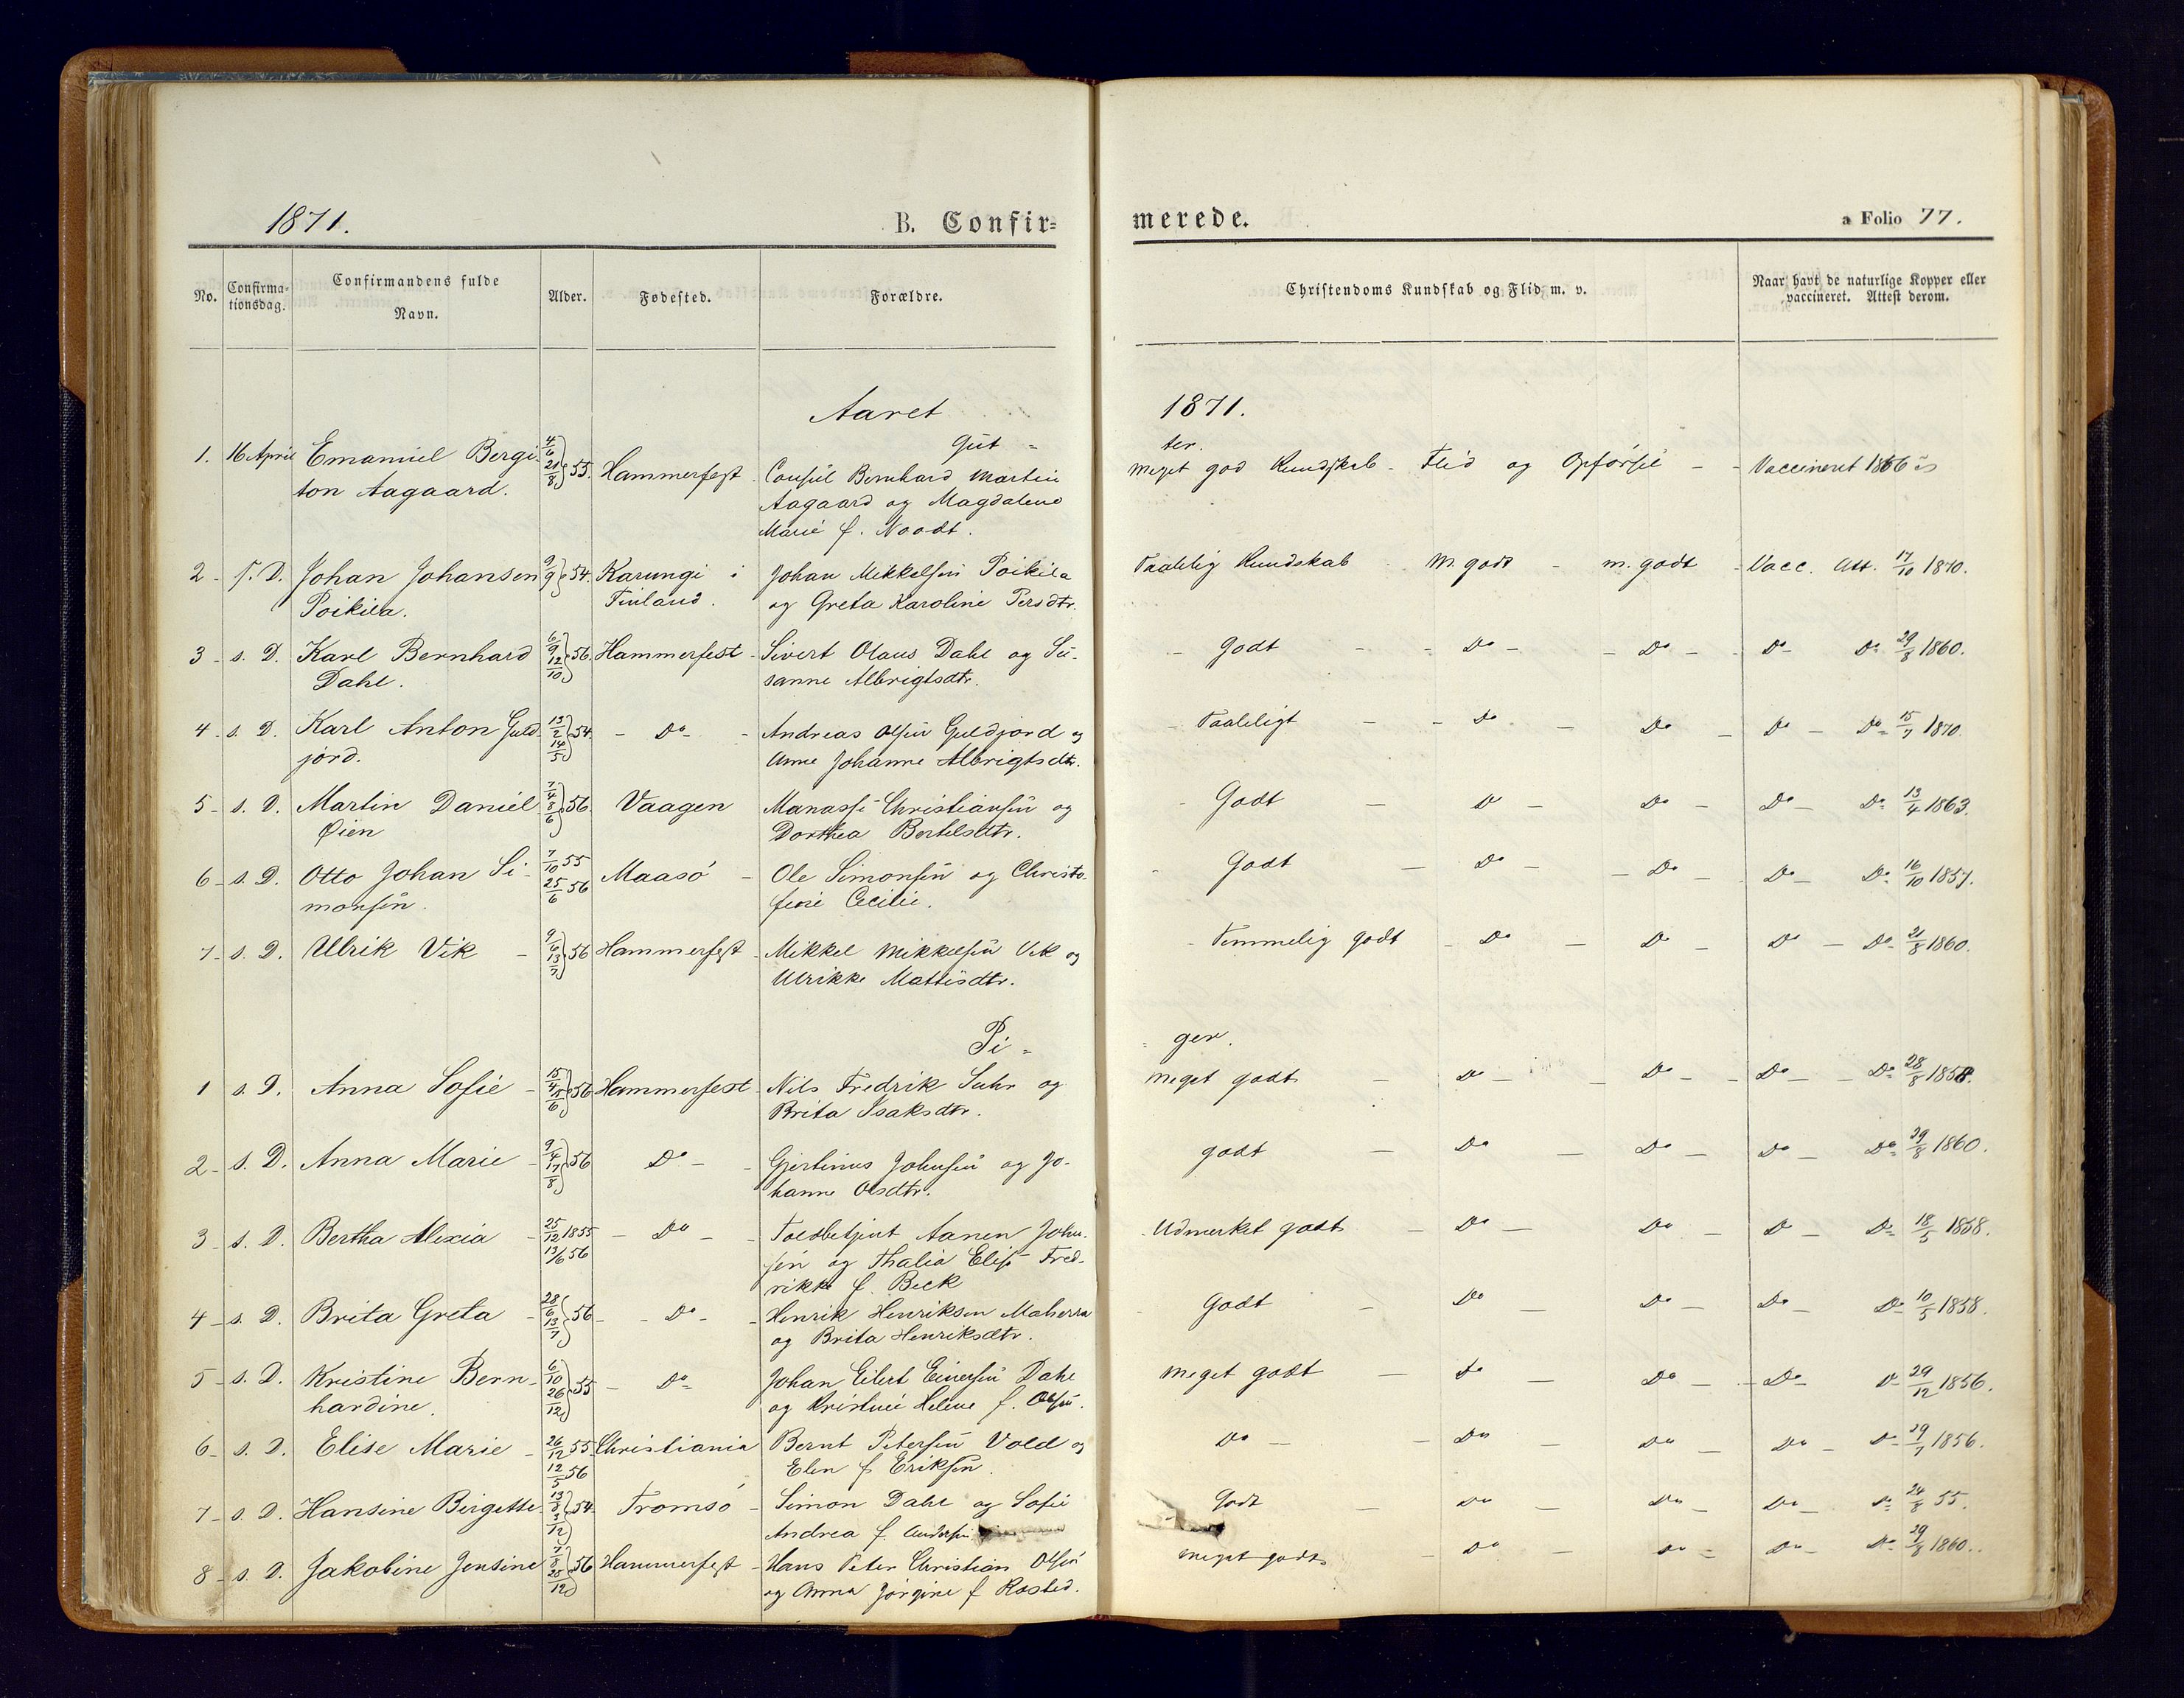 1871.
B. Confir=
merede.
a Folio 77.
No.
Confirma-
tionsdag.
Confirmandens fulde
Navn.
Alder.
Fødested.
Forældre.
Christendoms Kundskab og Flid m. v.
Naar havt de naturlige Kopper eller
vaccineret. Attest derom.
Aaret 1871.
Gut= ter.
1. 16 April Emanuel Bergi- 4/6 21/8 55. Hammerfest - Consul Bernhard Martin meget god Kundskab - Flid og Opførsel - - Vaccineret 1866
ton Aagaard. Aagaard og Magdalene
Marie f. Noodt.
2 - s. D. Johan Johansen 9/9 54. Karungi i Johan Mikkelsen Poikila Taalelig Kundskab - M. godt - m. godt - Vacc. Att. 17/10 1870.
Poikila. Finland. og Greta Karoline Persdtr.
3 - s. D. Karl Bernhard 6/9 12/10 56. Hammerfest - Sivert Olaus Dahl og Su- - Godt - - Do - - Do - - Do - Do 29/8 1860.
Dahl. sanne Albrigtsdtr.
4 - s. D. Karl Anton Guld- 13/2 14/5 54. - Do - - Andreas Olsen Guldjord og - Taaleligt - - Do - Do - Do - Do 15/7 1870.
jord. Anne Johanne Albrigtsdtr.
5 - s. D. Martin Daniel 7/4 8/6 56. Vaagen Manasse Christiansen og - Godt - Do - Do - Do - Do 13/4 1863.
Øien Dorthea Bertelsdtr.
6 - s. D. Otto Johan Si- 7/10 55 25/6 56 Maasø - Ole Simonsen og Christo- - Godt - Do - - Do - Do - Do 16/10 1857.
monsen. fine Cecilie.
7 - s. D. Ulrik Vik - 9/6 13/7 56 Hammerfest - Mikkel Mikkelsen Vik og - Temmelig godt - Do - Do - Do - Do 21/8 1860.
Ulrikke Mattisdtr.
Pi= =ger.
1 s. D. Anna Sofie - 15/4 /6 56 Hammerfest - Nils Fredrik Suhr og meget godt - Do - - Do - - Do - - Do 28/8 1858.
Brita Isaksdtr.
2 - s. D. Anna Marie - 9/4 17/8 56 Do - - Gjertinus Johnsen og Jo- godt - Do - Do - Do - Do 29/8 1860.
hanne Olsdtr.
3 - s. D. Bertha Alexia - 25/12 1855 13/6 56 - Do - - Toldbetjent Aanen John- - Udmerket godt - Do - Do - Do - Do 18/5 1858.
sen og Thalia Elise Fred-
rikke f. Beck
4 - s. D. Brita Greta - 28/6 13/7 56 - - Do - - Henrik Henriksen Maherra - Godt - Do - Do - Do - Do 10/5 1858.
og Brita Henriksdtr.
5 - s. D. Kristine Bern- 6/10 26/12 55 - Do Johan Eilert Einersen Dahl Meget godt - do - Do - - Do - Do 29/12 1856.
hardine. og Kristine Helene f. Olsen.
6 - s. D. Elise Marie - 26/12 55 12/5 56 Christiania Bernt Petersen Vold og Do - - Do - Do - Do - Do 29/7 1856.
Elen f. Eriksen.
7 - s. D. Hansine Birgette 13/8 3/12 54. Tromsø - Simon Dahl og Sofie Godt - Do - Do - Do - Do 24/8 55.
Andrea f. Andersen
8 - s. D. Jakobine Jensine 7/8 25/12 56 Hammerfest - Hans Peter Christian Olsen meget godt - Do - Do - Do - Do 29/8 1860.
og Anna Jørgine f. Rosted.